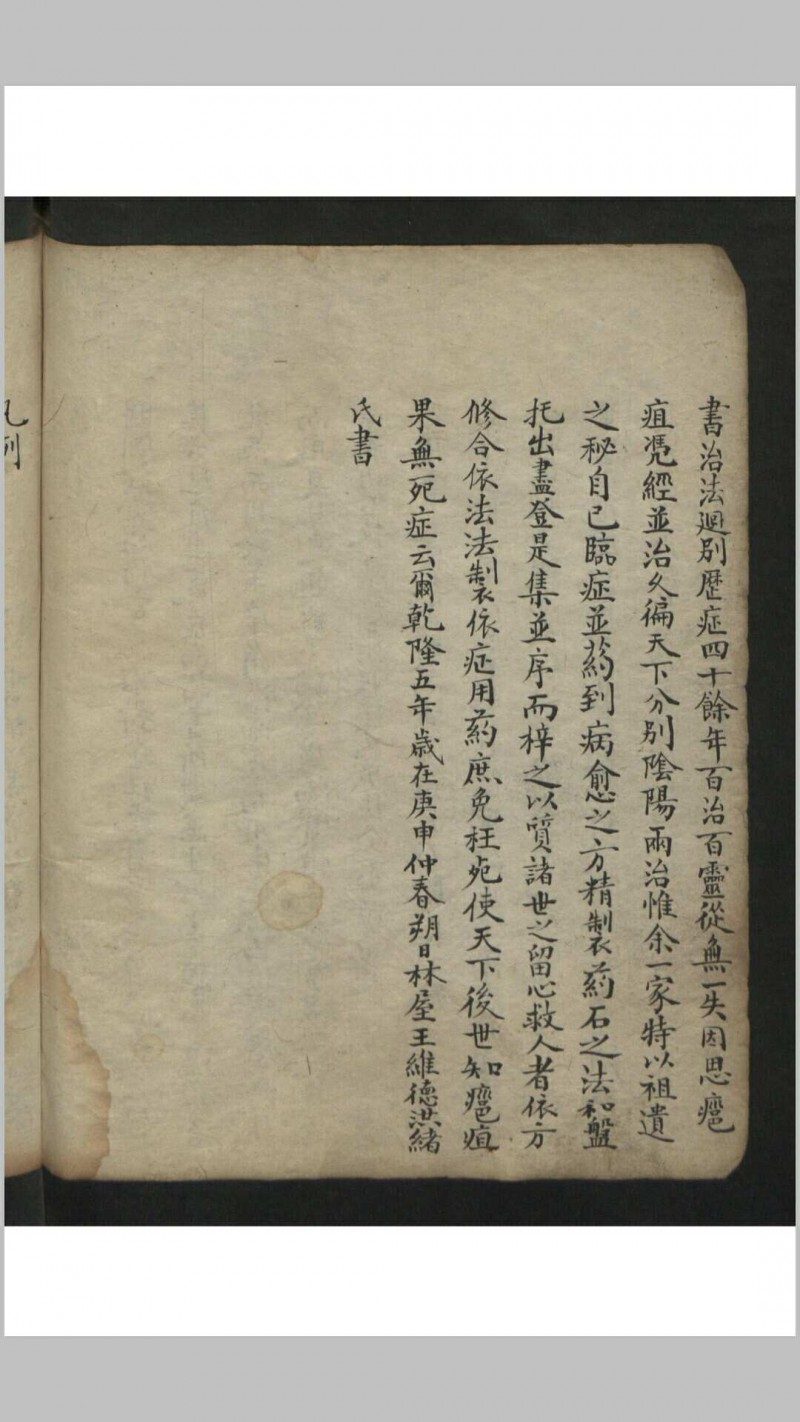 書治法迥別歷症四十餘年百治百靈從無一失因思癰
疽凴經並治久徧天下分別陰陽兩治惟余一家特以祖遺
之秘自己臨症並葯到病愈之方精製葯石之法和盤
托出盡登是集並序而梓之以質諸世之留心救人者依方
修合依法法製依症用葯庶免枉死使天下後世知癰疽
果無死症云爾乾隆五年歲在庚申仲春朔日林屋王維德洪緒
氏書
凡列